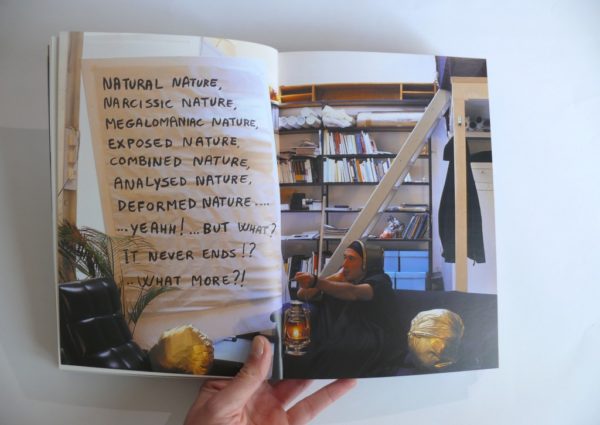 NATURAL NATURE,
NARCISSIC NATURE,
MEGALOMANIAC NATURE,
EXPOSED NATURE,
COMBINED NATURE,
ANALYSED NATURE,
DEFORMED NATURE....
...YEAHH! ...BUT WHAT?
IT NEVER ENDS!?
...WHAT MORE?!